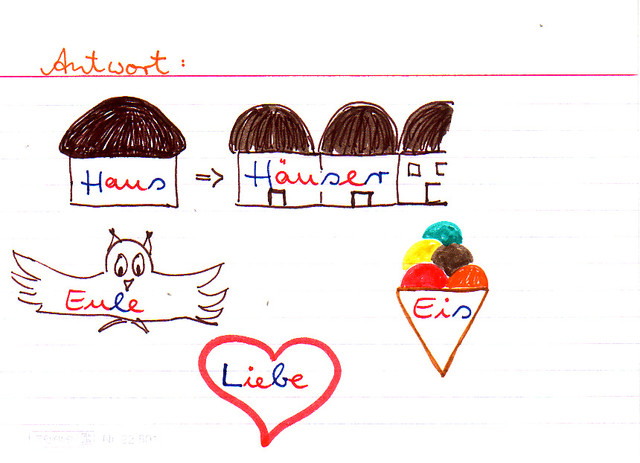 Antwort:
Haus => Häuser
Eule
Eis
Liebe